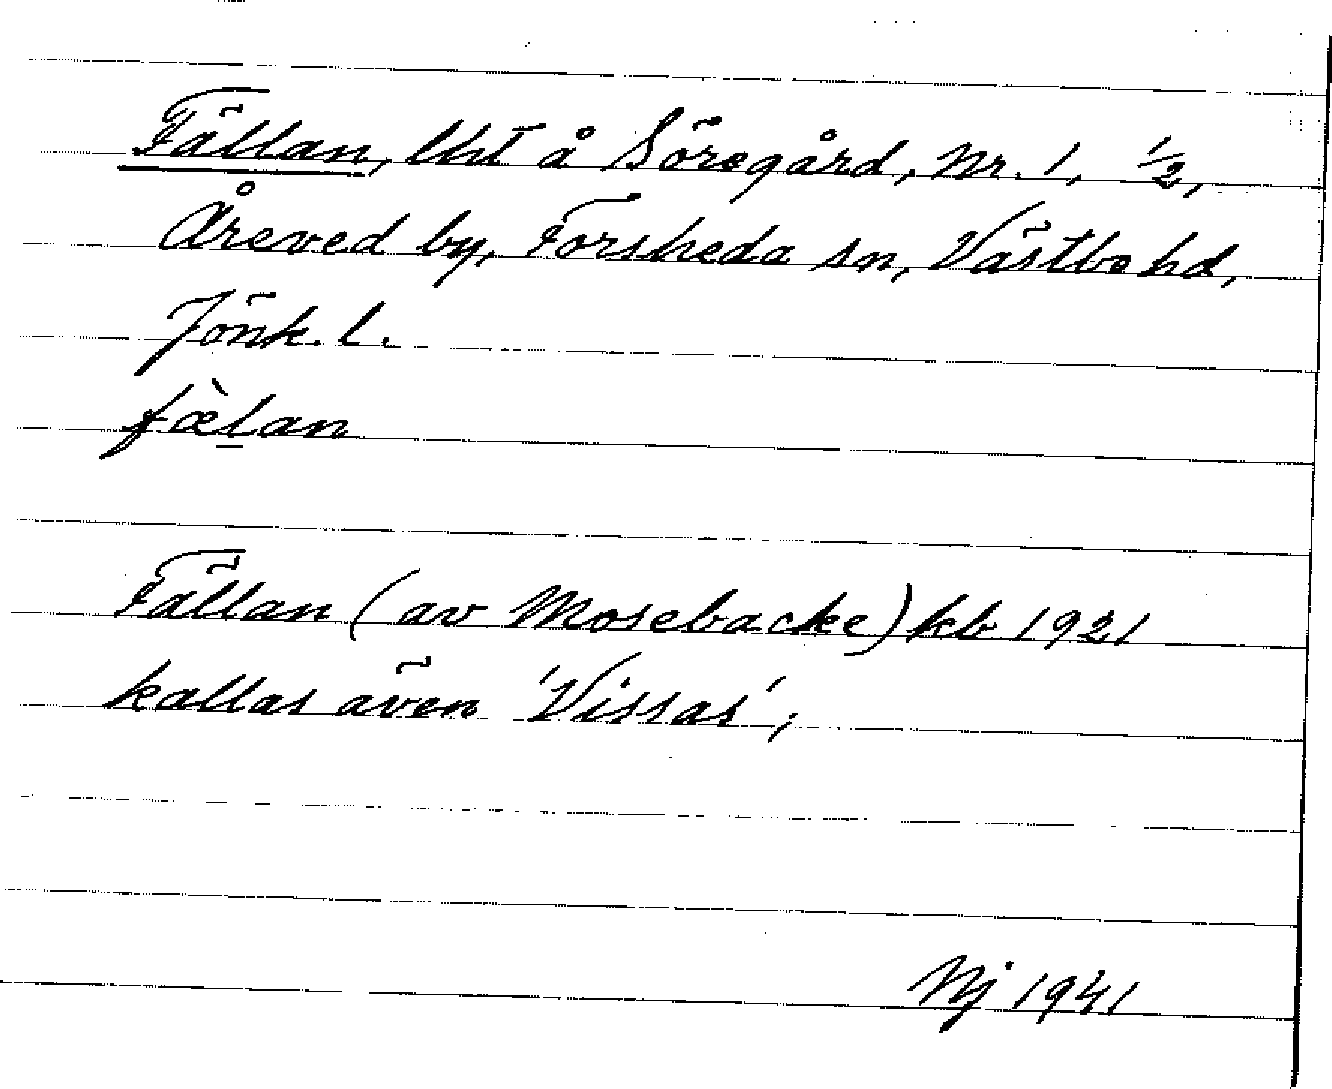 Fällan, lht å Söregård, Nr. 1, 1/2,
Åreved by, Forsheda sn, Västbo hd,
Jönk. l.
fæ̀l̲an
Fällan (av Mosebacke) kb 1921
kallas även 'Vissas',
Nj 1941